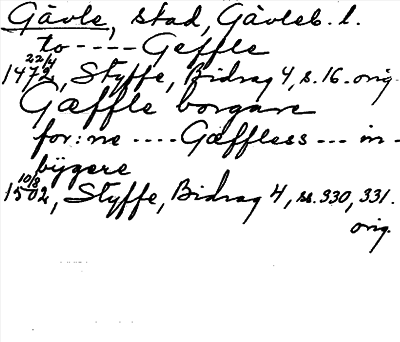 Gävle, stad, Gävleb. l.
to ---- Geffle
1472 22/4, Styffe, Bidrag 4, s. 16. orig.
Gæffle borgare
for:ne ---- Gæffless --- in-
bÿgere
1502 10/8, Styffe, Bidrag 4, ss. 330, 331.
orig.